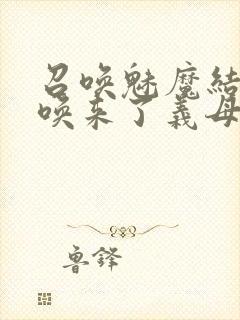 召唤魅魔結
唤来了義母
鲁鋒